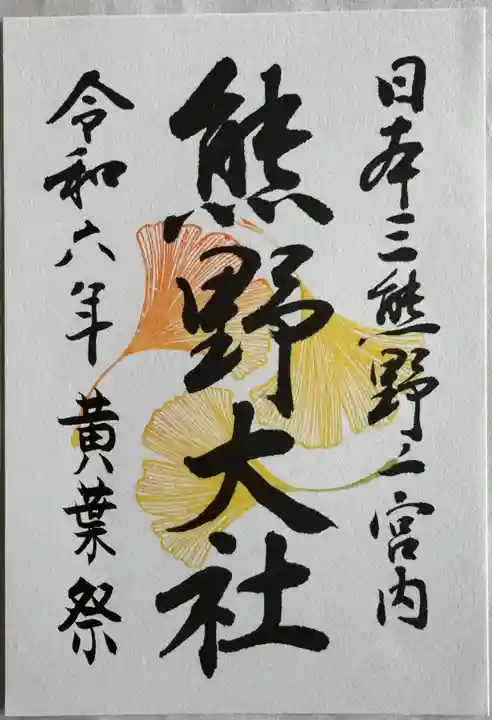 日本三熊野之宮内
熊野大社
令和六年 黄葉祭